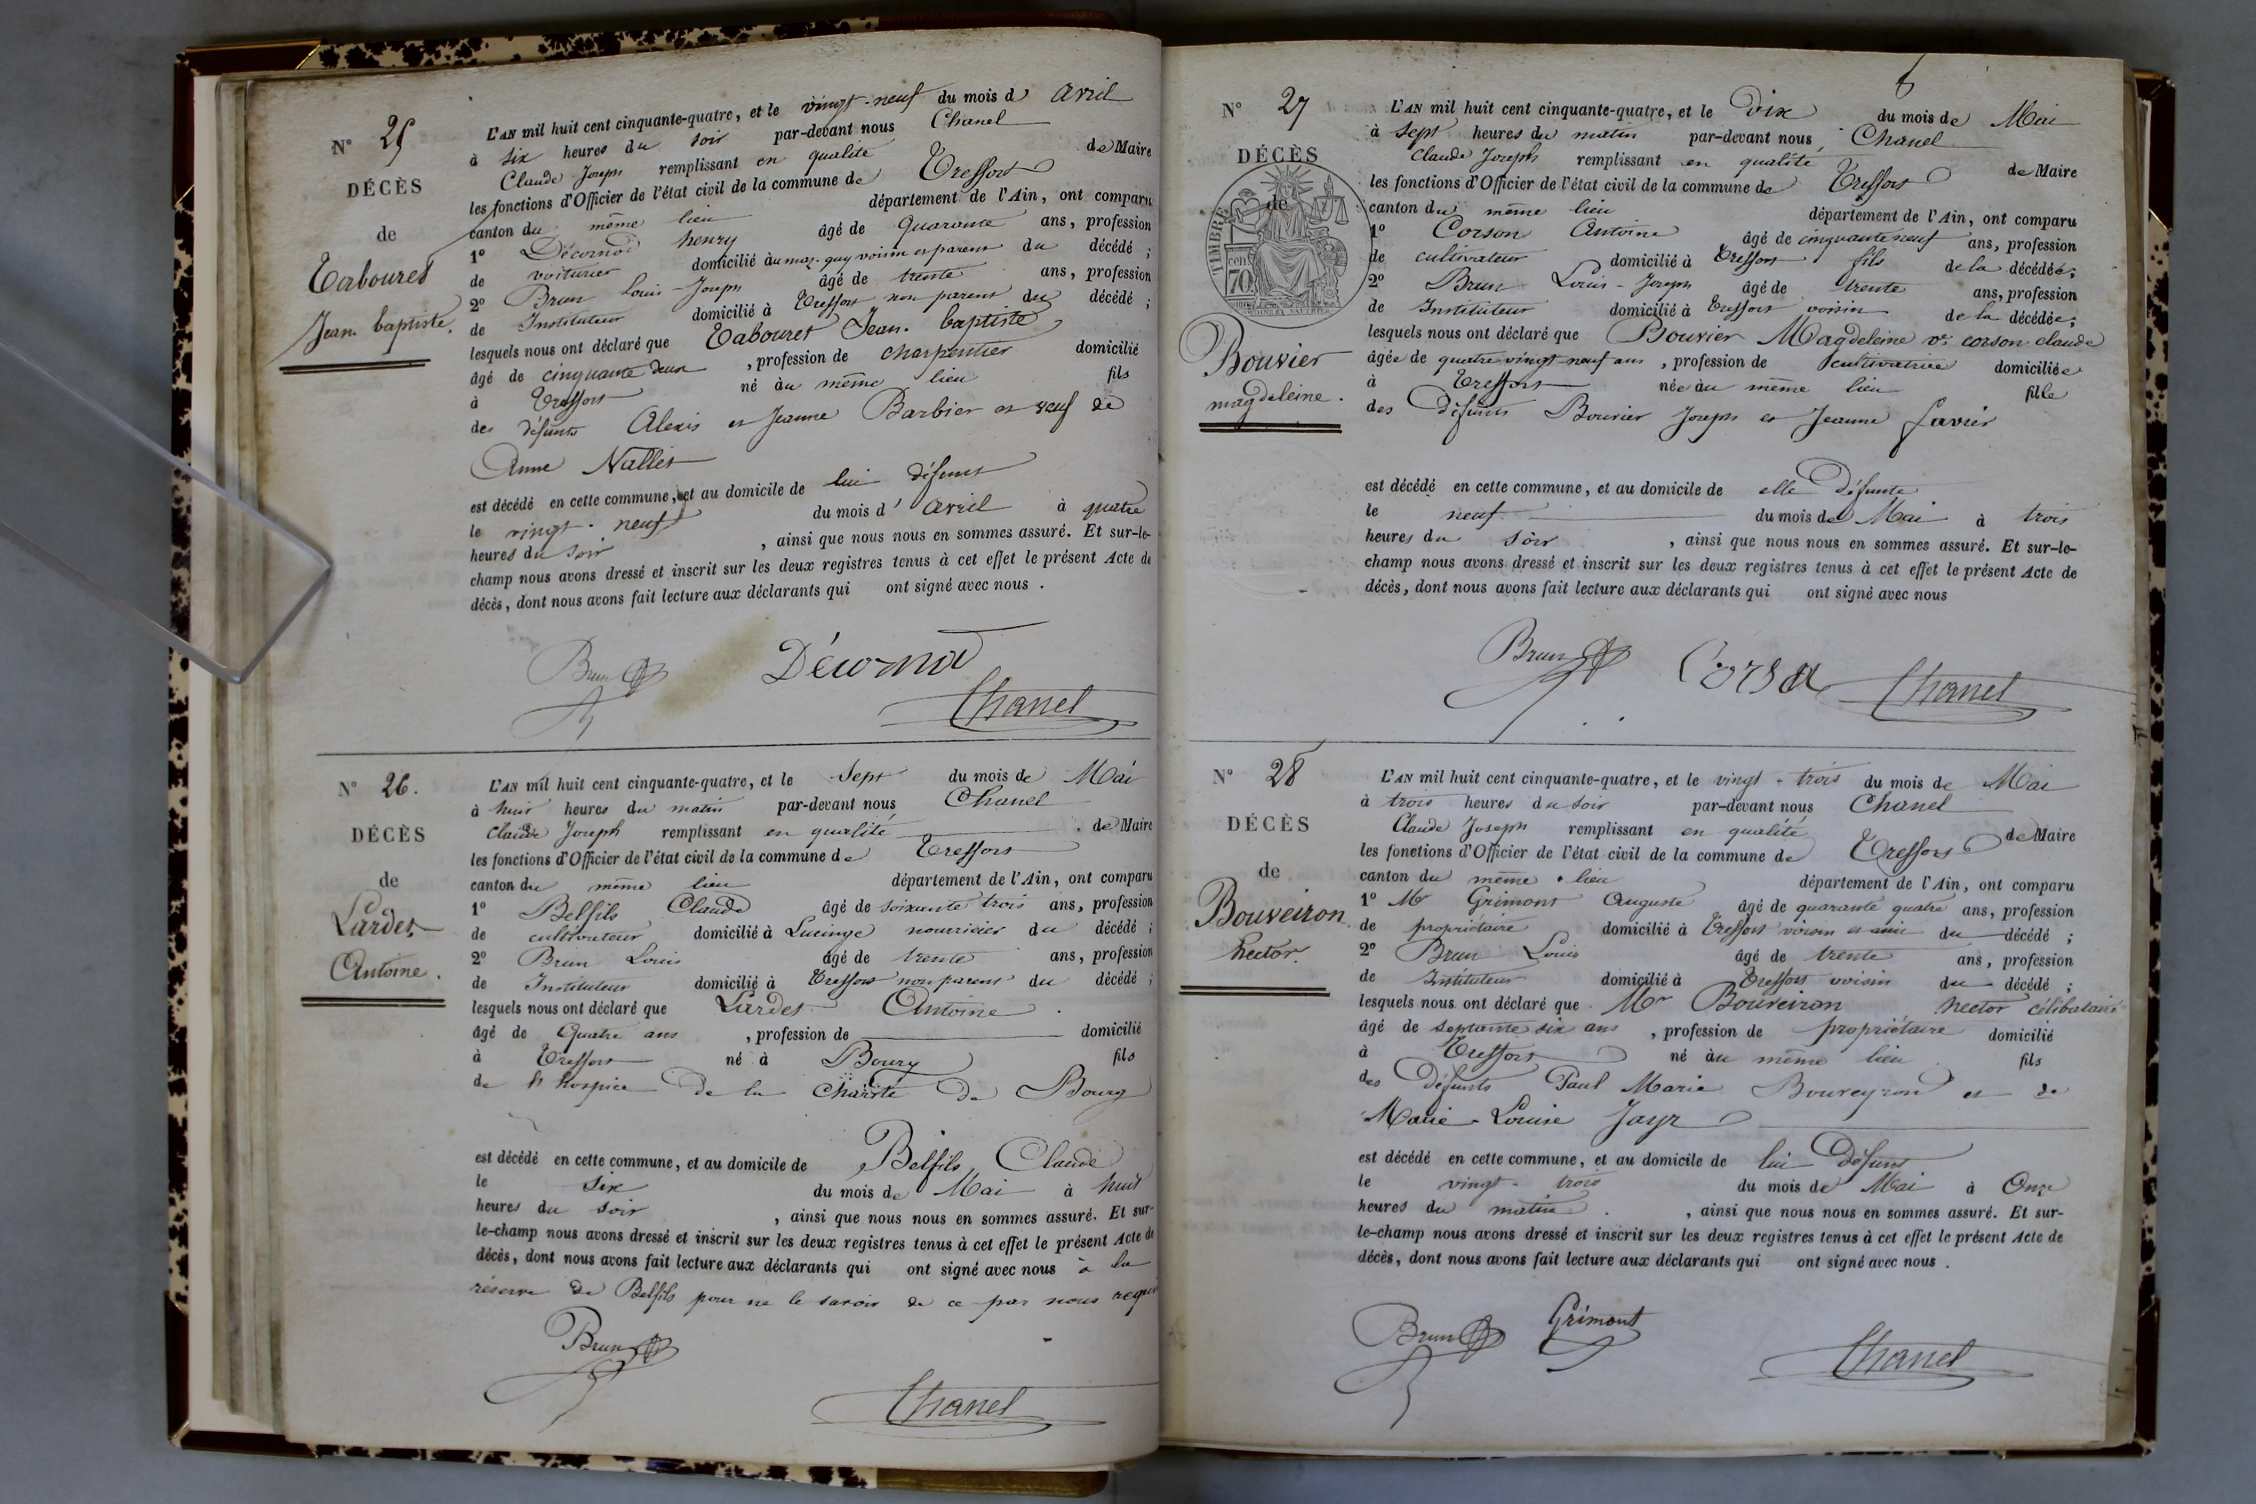 N° 25
DÉCÈS
de
Tabouret
Jean baptiste.
L'AN mil huit cent cinquante-quatre, et le vingt-neuf du mois d'avril
à six heures du soir par-devant nous Chanel
Claude Joseph remplissant en qualité de Maire
les fonctions d'Officier de l'état civil de la commune de Treffort
canton du même lieu département de l'Ain, ont comparu
1° Décornod henry âgé de quarante ans, profession
de voiturier domicilié à voisin et parent du décédé ;
2° Brun Louis-Joseph âgé de trente ans, profession
de Instituteur domicilié à Treffort non parent du décédé ;
lesquels nous ont déclaré que Tabouret Jean-baptiste
âgé de cinquante deux , profession de charpentier domicilié
à Treffort né au même lieu fils
des défunts Alexis et Jeanne Barbier et veuf de
Anne Nallet
est décédé en cette commune, et au domicile de lui défunt
le vingt-neuf du mois d'avril à quatre
heures du soir , ainsi que nous nous en sommes assuré. Et sur-le-
champ nous avons dressé et inscrit sur les deux registres tenus à cet effet le présent Acte de
décès, dont nous avons fait lecture aux déclarants qui ont signé avec nous .
Brun Décornod
Chanel
N° 26.
DÉCÈS
de
Lardet
Antoine.
L'AN mil huit cent cinquante-quatre, et le sept du mois de Mai
à huit heures du matin par-devant nous Chanel
claude Joseph remplissant en qualité de Maire
les fonctions d'Officier de l'état civil de la commune de Treffort
canton du même lieu département de l'Ain, ont comparu
1° Belfils Claude âgé de soixante trois ans, profession
de cultivateur domicilié à Lucinge nourricier du décédé ;
2° Brun Louis âgé de trente ans, profession
de Instituteur domicilié à Treffort non parent du décédé ;
lesquels nous ont déclaré que Lardet Antoine
âgé de quatre ans , profession de domicilié
à Treffort né à Bourg fils
de l'hospice de la Charité de Bourg
est décédé en cette commune, et au domicile de Belfils Claude
le six du mois de Mai à huit
heures du soir , ainsi que nous nous en sommes assuré. Et sur-
le-champ nous avons dressé et inscrit sur les deux registres tenus à cet effet le présent Acte de
décès, dont nous avons fait lecture aux déclarants qui ont signé avec nous à la
réserve de Belfils pour ne le savoir de ce par nous requis
Brun
Chanel
6
N° 27
DÉCÈS
de
TIMBRE
70 cen
Bouvier
magdeleine.
L'AN mil huit cent cinquante-quatre, et le dix du mois de Mai
à sept heures du matin par-devant nous Chanel
Claude Joseph remplissant en qualité de Maire
les fonctions d'Officier de l'état civil de la commune de Treffort
canton du même lieu département de l'Ain, ont comparu
1° Corson Antoine âgé de cinquante neuf ans, profession
de cultivateur domicilié à Treffort fils de la décédée ;
2° Brun Louis-Joseph âgé de trente ans, profession
de Instituteur domicilié à Treffort voisin de la décédée ;
lesquels nous ont déclaré que Bouvier Magdeleine vve corson claude
âgée de quatre vingt neuf ans , profession de cultivatrice domiciliée
à Treffort née au même lieu fille
des défunts Bouvier Joseph et Jeanne favier
est décédé en cette commune, et au domicile de elle Défunte
le neuf du mois de Mai à trois
heures du soir , ainsi que nous nous en sommes assuré. Et sur-le-
champ nous avons dressé et inscrit sur les deux registres tenus à cet effet le présent Acte de
décès, dont nous avons fait lecture aux déclarants qui ont signé avec nous
Brun Chanel
N° 28
DÉCÈS
de
Bouveiron
hector.
L'AN mil huit cent cinquante-quatre, et le vingt-trois du mois de Mai
à trois heures du soir par-devant nous Chanel
Claude Joseph remplissant en qualité de Maire
les fonctions d'Officier de l'état civil de la commune de Treffort
canton du même lieu département de l'Ain, ont comparu
1° Mr Grimont Auguste âgé de quarante quatre ans, profession
de propriétaire domicilié à Treffort voisin et ami du décédé ;
2° Brun Louis âgé de trente ans, profession
de Instituteur domicilié à Treffort voisin du décédé ;
lesquels nous ont déclaré que Mr Bouveiron hector célibataire
âgé de septante six ans , profession de propriétaire domicilié
à Treffort né au même lieu fils
des défunts Paul Marie Bouveyron et de
Marie-Louise Jayr
est décédé en cette commune, et au domicile de lui Défunt
le vingt-trois du mois de Mai à Onze
heures du matin , ainsi que nous nous en sommes assuré. Et sur-
le-champ nous avons dressé et inscrit sur les deux registres tenus à cet effet le présent Acte de
décès, dont nous avons fait lecture aux déclarants qui ont signé avec nous .
Brun Grimont
Chanel